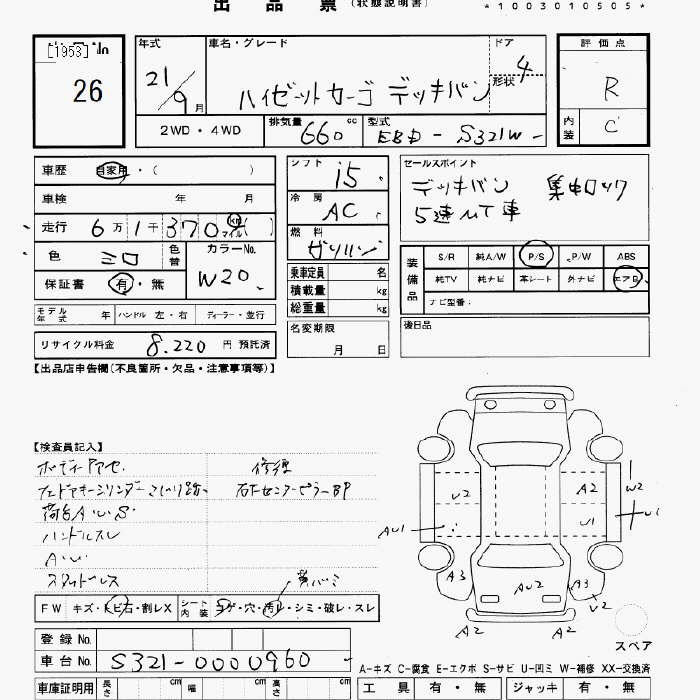 出品票(状態説明書)
*1003010505*
[1953]
26
年式 21/9月
車名・グレード ハイゼットカーゴ デッキバン
ドア 4
形状
評価点 R
内装 C
2WD・4WD
排気量 660 cc
型式 EBD-S321W-
車歴 自家用・( )
車検 年 月
走行 6万1千370 km マイル ( )
色 シロ 色替
カラーNo. W20
保証書 有・無
シフト i5
冷房 AC
燃料 ガソリン
乗車定員 名
積載量 kg
総重量 kg
セールスポイント
デッキバン 集中ロック
5速MT車
装備品 S/R 純A/W P/S P/W ABS
純TV 純ナビ 革シート 外ナビ エアB
ナビ型番:
モデル年式 年 ハンドル 左・右 ディーラー・並行
名変期限 月 日
後日品
リサイクル料金 8.220 円 預託済
【出品店申告欄(不良箇所・欠品・注意事項等)】
【検査員記入】
ボディドアセ. 修復
右センターピラーBP
荷台A・W・S
ハンドルスレ
A・W
スタッドレス
FW キズ・トビ石・割レX シート内装 コゲ・穴・汚レ・シミ・破レ・スレ
登録No.
車台No. S321-0000960
車庫証明用 長さ cm 幅 cm 高さ cm
U2
A2
W2
AU1
U1
A3
AU2
A3
U2
A2
A2
スペア
A-キズ C-腐食 E-エクボ S-サビ U-凹ミ W-補修 XX-交換済
工具 有・無 ジャッキ 有・無